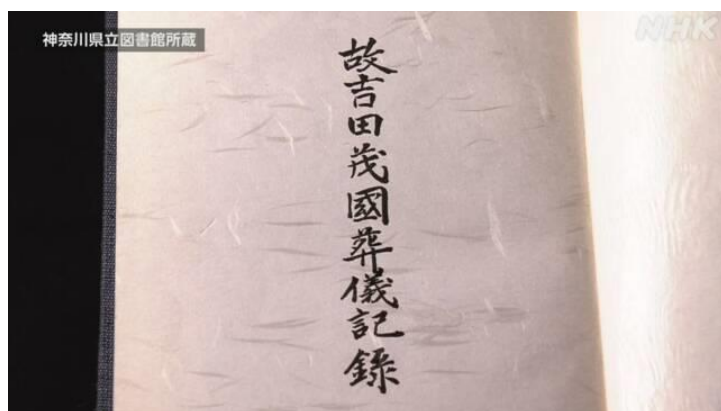 神奈川県立図書館所蔵
NHK
故吉田茂國葬儀記録